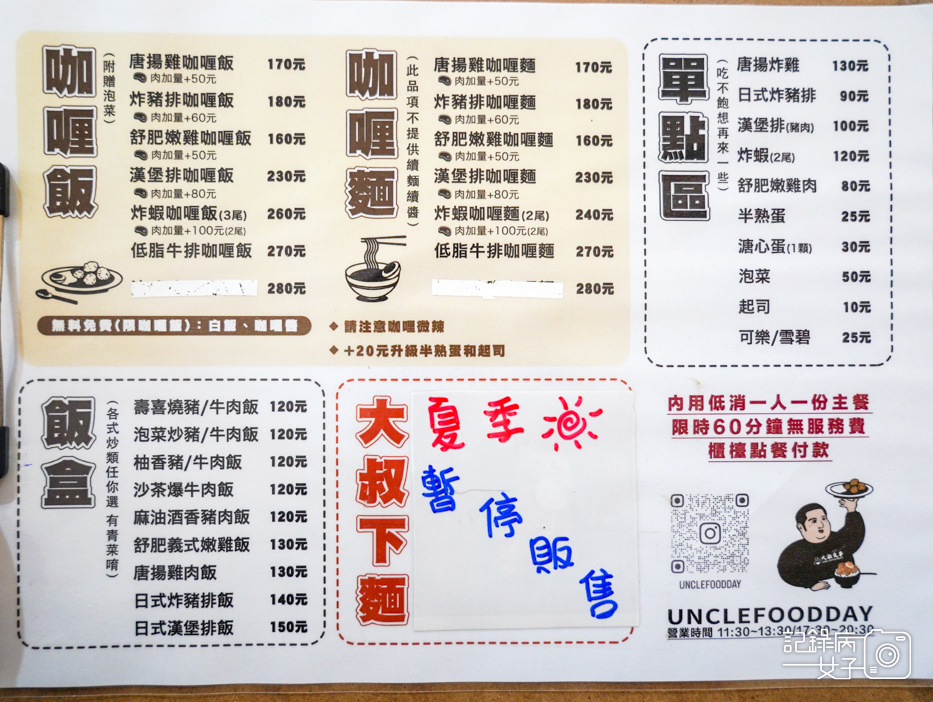 咖哩飯
(附贈泡菜)
唐揚雞咖哩飯 170元
肉加量+50元
炸豬排咖哩飯 180元
肉加量+60元
舒肥嫩雞咖哩飯 160元
肉加量+50元
漢堡排咖哩飯 230元
肉加量+80元
炸蝦咖哩飯(3尾) 260元
肉加量+100元(2尾)
低脂牛排咖哩飯 270元
280元
無料免費(限咖哩飯)：白飯、咖哩醬
咖哩麵
(此品項不提供續麵續醬)
唐揚雞咖哩麵 170元
肉加量+50元
炸豬排咖哩麵 180元
肉加量+60元
舒肥嫩雞咖哩麵 160元
肉加量+50元
漢堡排咖哩麵 230元
肉加量+80元
炸蝦咖哩麵(2尾) 240元
肉加量+100元(2尾)
低脂牛排咖哩麵 270元
280元
◆ 請注意咖哩微辣
◆ +20元升級半熟蛋和起司
單點區
(吃不飽想再來一些)
唐揚炸雞 130元
日式炸豬排 90元
漢堡排(豬肉) 100元
炸蝦(2尾) 120元
舒肥嫩雞肉 80元
半熟蛋 25元
溏心蛋(1顆) 30元
泡菜 50元
起司 10元
可樂/雪碧 25元
飯盒
(各式炒類任你選 有青菜唷)
壽喜燒豬/牛肉飯 120元
泡菜炒豬/牛肉飯 120元
柚香豬/牛肉飯 120元
沙茶爆牛肉飯 120元
麻油酒香豬肉飯 120元
舒肥義式嫩雞飯 130元
唐揚雞肉飯 130元
日式炸豬排飯 140元
日式漢堡排飯 150元
大叔下麵
夏季
暫停販售
內用低消一人一份主餐
限時60分鐘無服務費
櫃檯點餐付款
UNCLEFOODDAY
UNCLEFOODDAY
營業時間 11:30~13:30/17:30~20:30
記錄病
女子